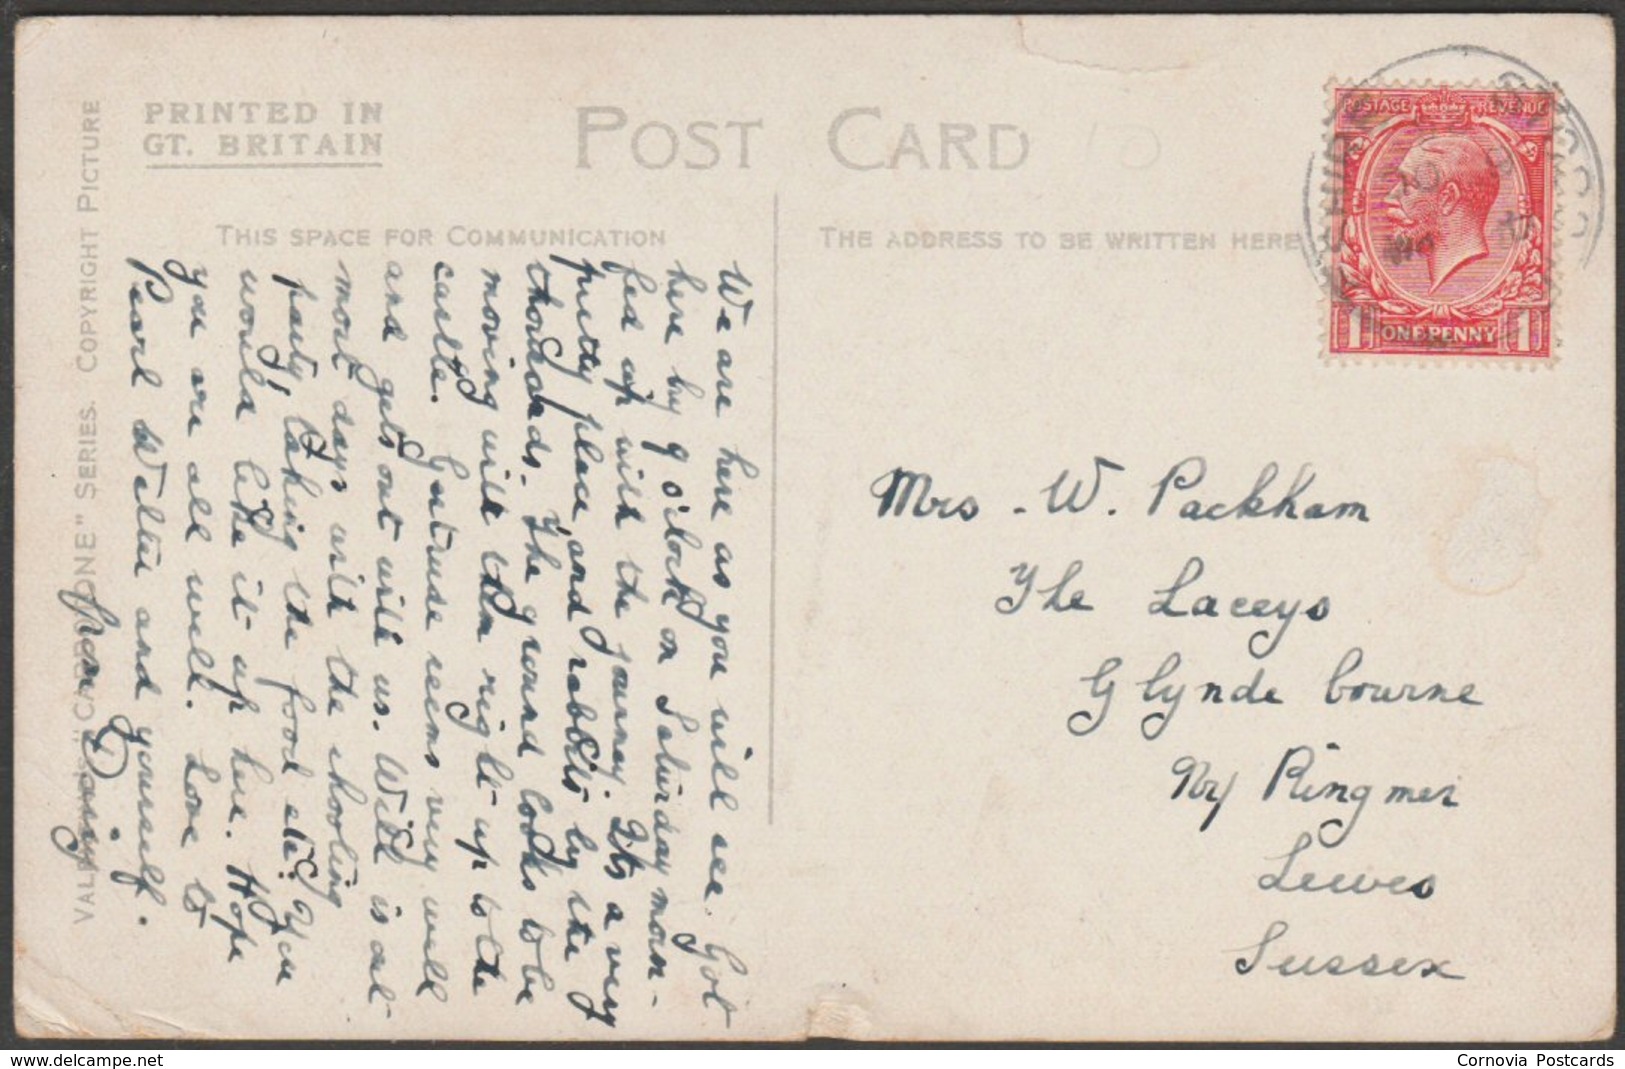 PRINTED IN
GT. BRITAIN
POST CARD
10
THIS SPACE FOR COMMUNICATION
THE ADDRESS TO BE WRITTEN HERE
POSTAGE REVENUE
1 ONE PENNY 1
We are here as you will see. Got
here by 9 o'clock on Saturday morn-
fed up with the journey. Its a very
pretty place and rabbits by the
thousands. The ground looks to be
moving with them right up to the
castle. Gertrude seems very well
and gets out with us. Will is out
most days with the shooting
party, taking the food etc. You
would like it up here. Hope
you are all well. Love to
Pearl Walter and yourself.
from Daisy
Mrs - W. Packham
The Laceys
Glynde bourne
Nr Ringmer
Lewes
Sussex
VALENTINE'S "CARBOTONE" SERIES. COPYRIGHT PICTURE
delcampe.net
Cornovia Postcards